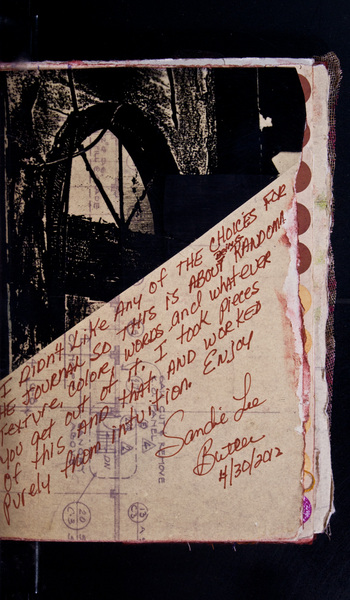 I DIDN'T LIKE ANY OF THE CHOICES FOR
THE JOURNAL SO THIS IS ABOUT BEING RANDOM.
TEXTURE, COLOR, WORDS and whatever
you get out of it. I TOOK PIECES
OF THIS AND THAT AND WORKED
PURELY from intuition. ENJOY
Sandie Lee
Butler
4/30/2012